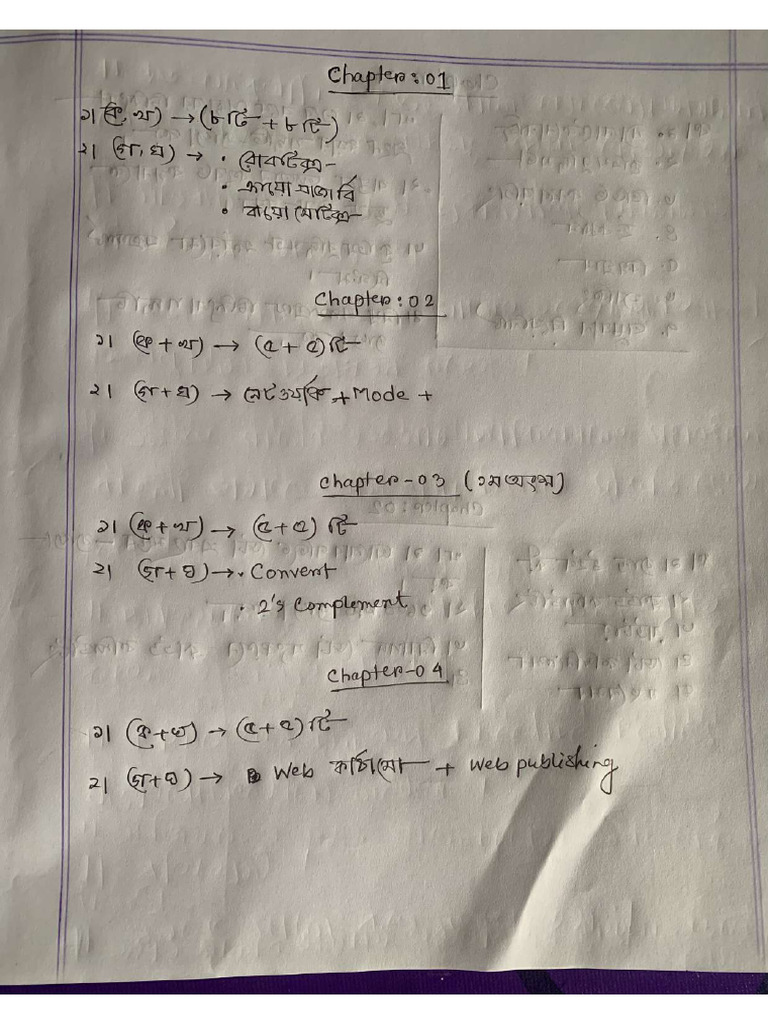 Chapter: 01
১। (ক, খ) → (৮টি + ৮টি)
২। (গ, ঘ) → • রোবটিক্স
• ক্রায়োসার্জারি
• বায়োমেট্রিক্স
Chapter: 02
১। (ক + খ) → (৫ + ৫) টি
২। (গ + ঘ) → নেটওয়ার্কিং + Mode +
Chapter-03 (১ম অংশ)
১। (ক + খ) → (৫ + ৫) টি
২। (গ + ঘ) → • Convert
• 2's Complement
Chapter-04
১। (ক + খ) → (৫ + ৫) টি
২। (গ + ঘ) → Web কাঠামো + Web publishing